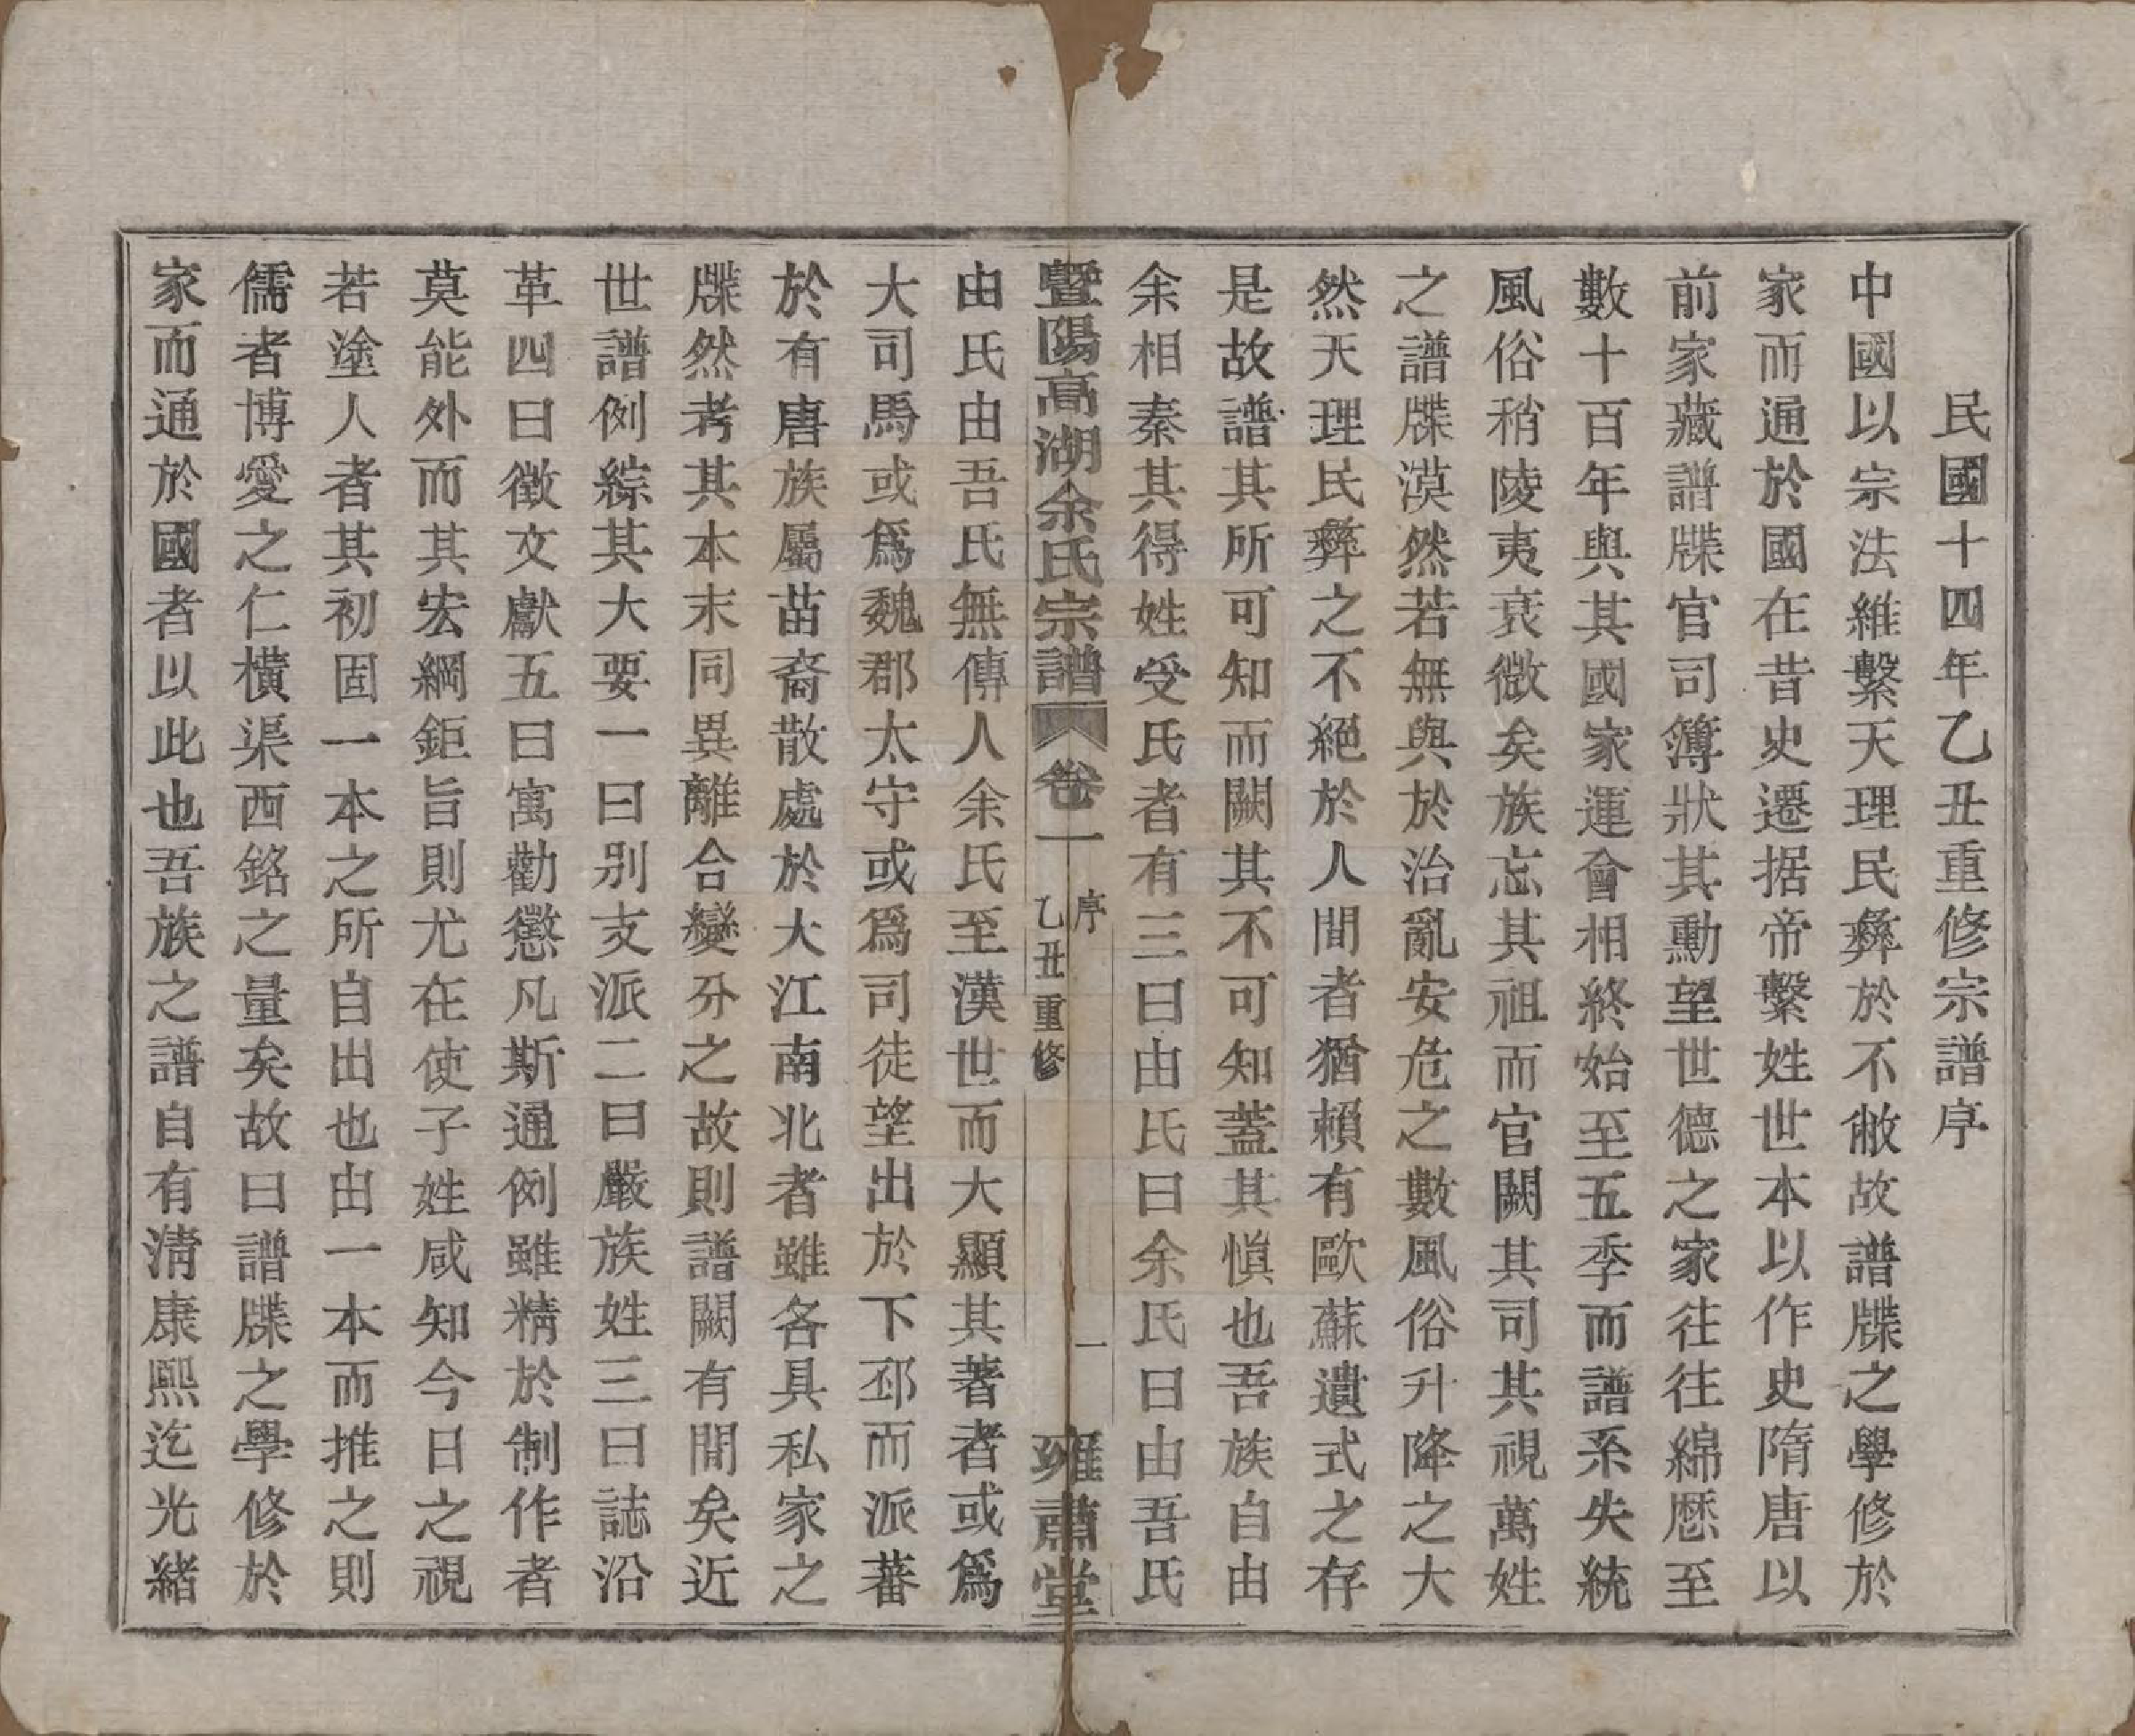 民國十四年乙丑重修宗譜序
中國以宗法維繫天理民彝於不敝故譜牒之學修於
家而通於國在昔史遷据帝繫姓世本以作史隋唐以
前家藏譜牒官司簿狀其勳望世德之家往往綿歷至
數十百年與其國家運會相終始至五季而譜系失統
風俗稍陵夷衰微矣族忘其祖而官闕其司其視萬姓
之譜牒漠然若無與於治亂安危之數風俗升降之大
然天理民彝之不絕於人間者猶賴有歐蘇遺式之存
是故譜其所可知而闕其不可知蓋其愼也吾族自由
余相秦其得姓受氏者有三曰由氏曰余氏曰由吾氏
暨陽高湖余氏宗譜 卷一 序 乙丑重修 一 雍肅堂
由氏由吾氏無傳人余氏至漢世而大顯其著者或爲
大司馬或爲魏郡太守或爲司徒望出於下邳而派蕃
於有唐族屬苗裔散處於大江南北者雖各具私家之
牒然考其本末同異離合變分之故則譜闕有間矣近
世譜例綜其大要一曰别支派二曰嚴族姓三曰誌沿
革四曰徵文獻五曰寓勸懲凡斯通例雖精於制作者
莫能外而其宏綱鉅旨則尤在使子姓咸知今日之視
若塗人者其初固一本之所自出也由一本而推之則
儒者博愛之仁橫渠西銘之量矣故曰譜牒之學修於
家而通於國者以此也吾族之譜自有淸康熙迄光緒